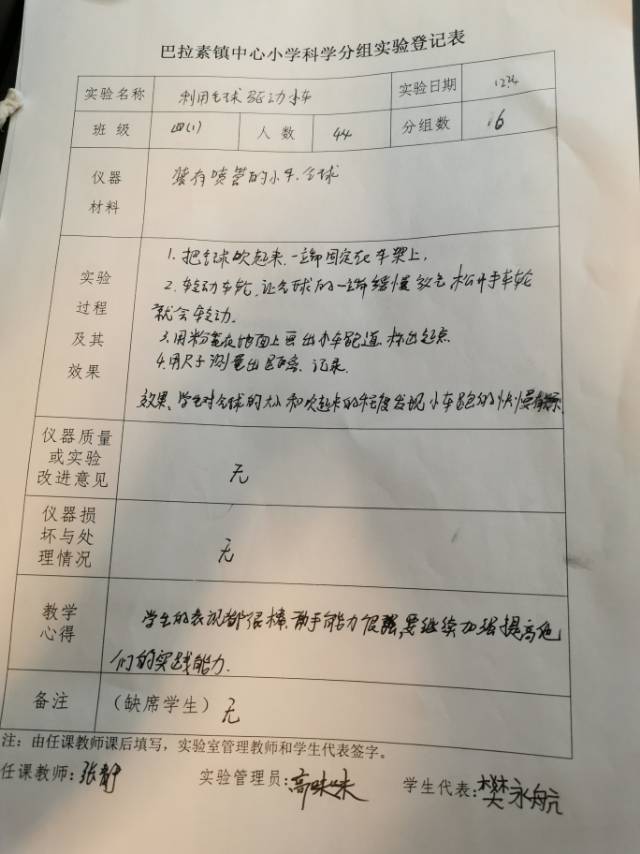 巴拉素镇中心小学科学分组实验登记表
实验名称 利用气球驱动小车 实验日期 12.24
班级 四(1) 人数 44 分组数 16
仪器 装有喷管的小车.气球
材料
实验
过程
及其
效果
1. 把气球吹起来.一端固定在车架上,
2. 转动车轮,让气球的一端缓慢放气松开手车轮
就会转动.
3.用粉笔在地面上画出小车跑道.标出起点
4.用尺子测量出距离.记录.
效果、学生对气球的大小和吹起来的程度发现小车跑的快慢有关系
仪器质量
或实验
改进意见
无
仪器损
坏与处
理情况
无
教学
心得
学生的表现都很棒,动手能力很强,要继续加强提高他
们的实践能力.
备注 (缺席学生) 无
注：由任课教师课后填写，实验室管理教师和学生代表签字。
任课教师: 张静 实验管理员: 高味味 学生代表: 樊永航